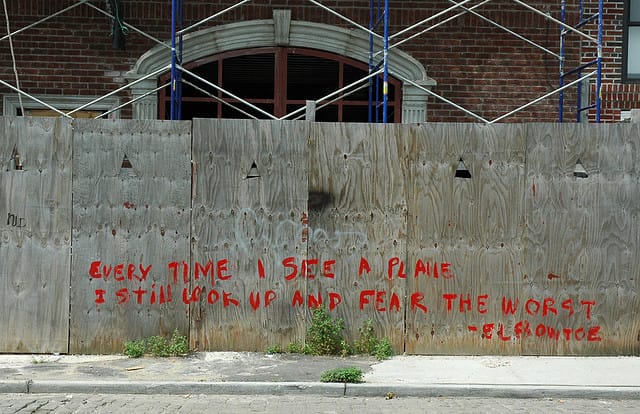 EVERY TIME I SEE A PLANE
I STill LOOK UP AND FEAR THE WORST
-ELBOWTOE